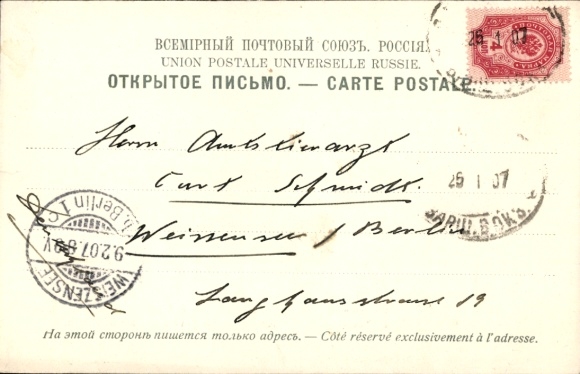 26 1 07
ВСЕМІРНЫЙ ПОЧТОВЫЙ СОЮЗЪ. РОССІЯ.
UNION POSTALE UNIVERSELLE RUSSIE.
ОТКРЫТОЕ ПИСЬМО. — CARTE POSTALE.
Herrn Amtstierarzt
Curt Schmidt.
25 1 07
Weissensee / Berlin
b. Berlin 1
9.2.07.8-9V.
WEISSENSEE
Langhansstrasse 19
На этой сторонѣ пишется только адресъ. — Côté réservé exclusivement à l'adresse.